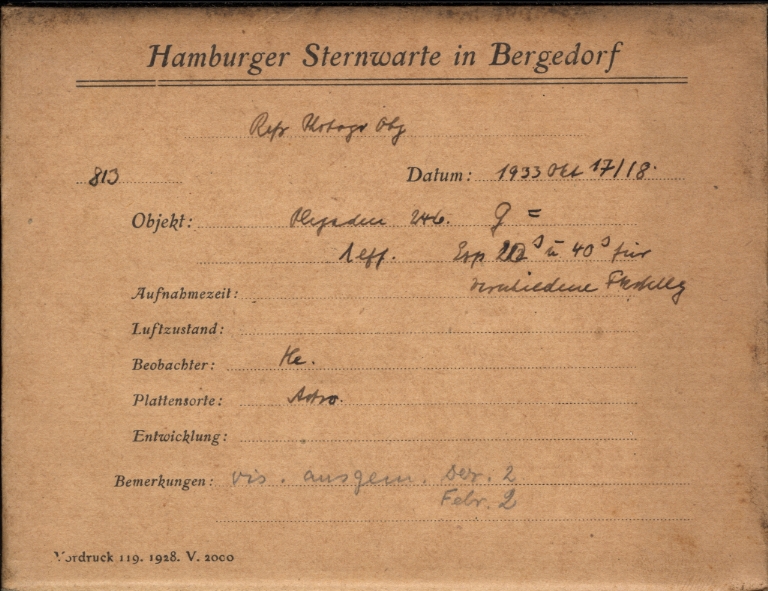 Hamburger Sternwarte in Bergedorf
Refr Photogr Obj
813 Datum: 1933 Okt 17/18.
Objekt: Plejaden 246. g =
1 eff. Exp 20s u 40s für
Aufnahmezeit: verschiedene
Luftzustand:
Beobachter: He.
Plattensorte: Astro.
Entwicklung:
Bemerkungen: vis. ausgem. Dez. 2
Febr. 2
Vordruck 119. 1928. V. 2000